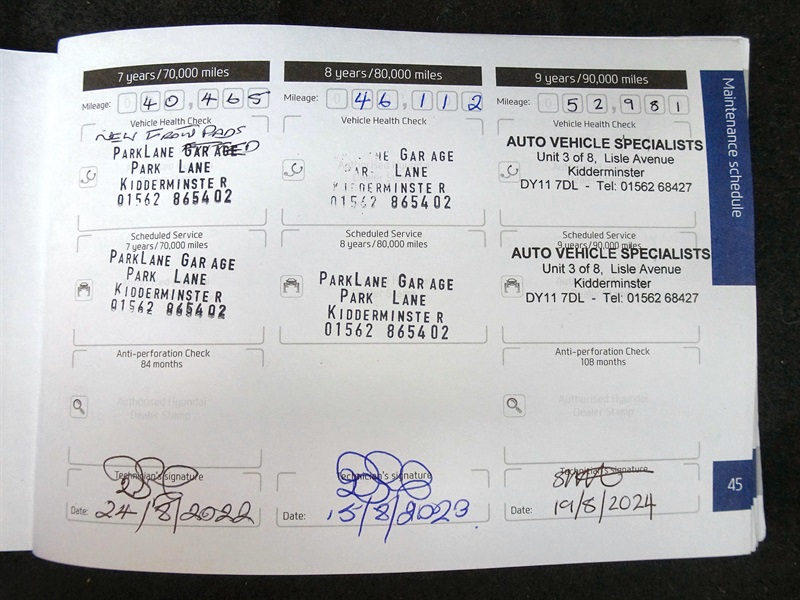 7 years/70,000 miles
Mileage: 040,465
Vehicle Health Check
NEW FRONT PADS
PARKLANE GARAGE
PARK LANE
KIDDERMINSTER
01562 865402
Scheduled Service
7 years/70,000 miles
PARKLANE GARAGE
PARK LANE
KIDDERMINSTER
01562 865402
Anti-perforation Check
84 months
Authorised Hyundai
Dealer Stamp
Technician's signature
Date: 24/8/2022
8 years/80,000 miles
Mileage: 046,112
Vehicle Health Check
GARAGE
LANE
KIDDERMINSTER
01562 865402
Scheduled Service
8 years/80,000 miles
PARKLANE GARAGE
PARK LANE
KIDDERMINSTER
01562 865402
Technician's signature
Date: 15/8/2023
9 years/90,000 miles
Mileage: 052,981
Vehicle Health Check
AUTO VEHICLE SPECIALISTS
Unit 3 of 8, Lisle Avenue
Kidderminster
DY11 7DL - Tel: 01562 68427
Scheduled Service
9 years/90,000 miles
AUTO VEHICLE SPECIALISTS
Unit 3 of 8, Lisle Avenue
Kidderminster
DY11 7DL - Tel: 01562 68427
Anti-perforation Check
108 months
Authorised Hyundai
Dealer Stamp
Technician's signature
Date: 19/8/2024
Maintenance schedule
45